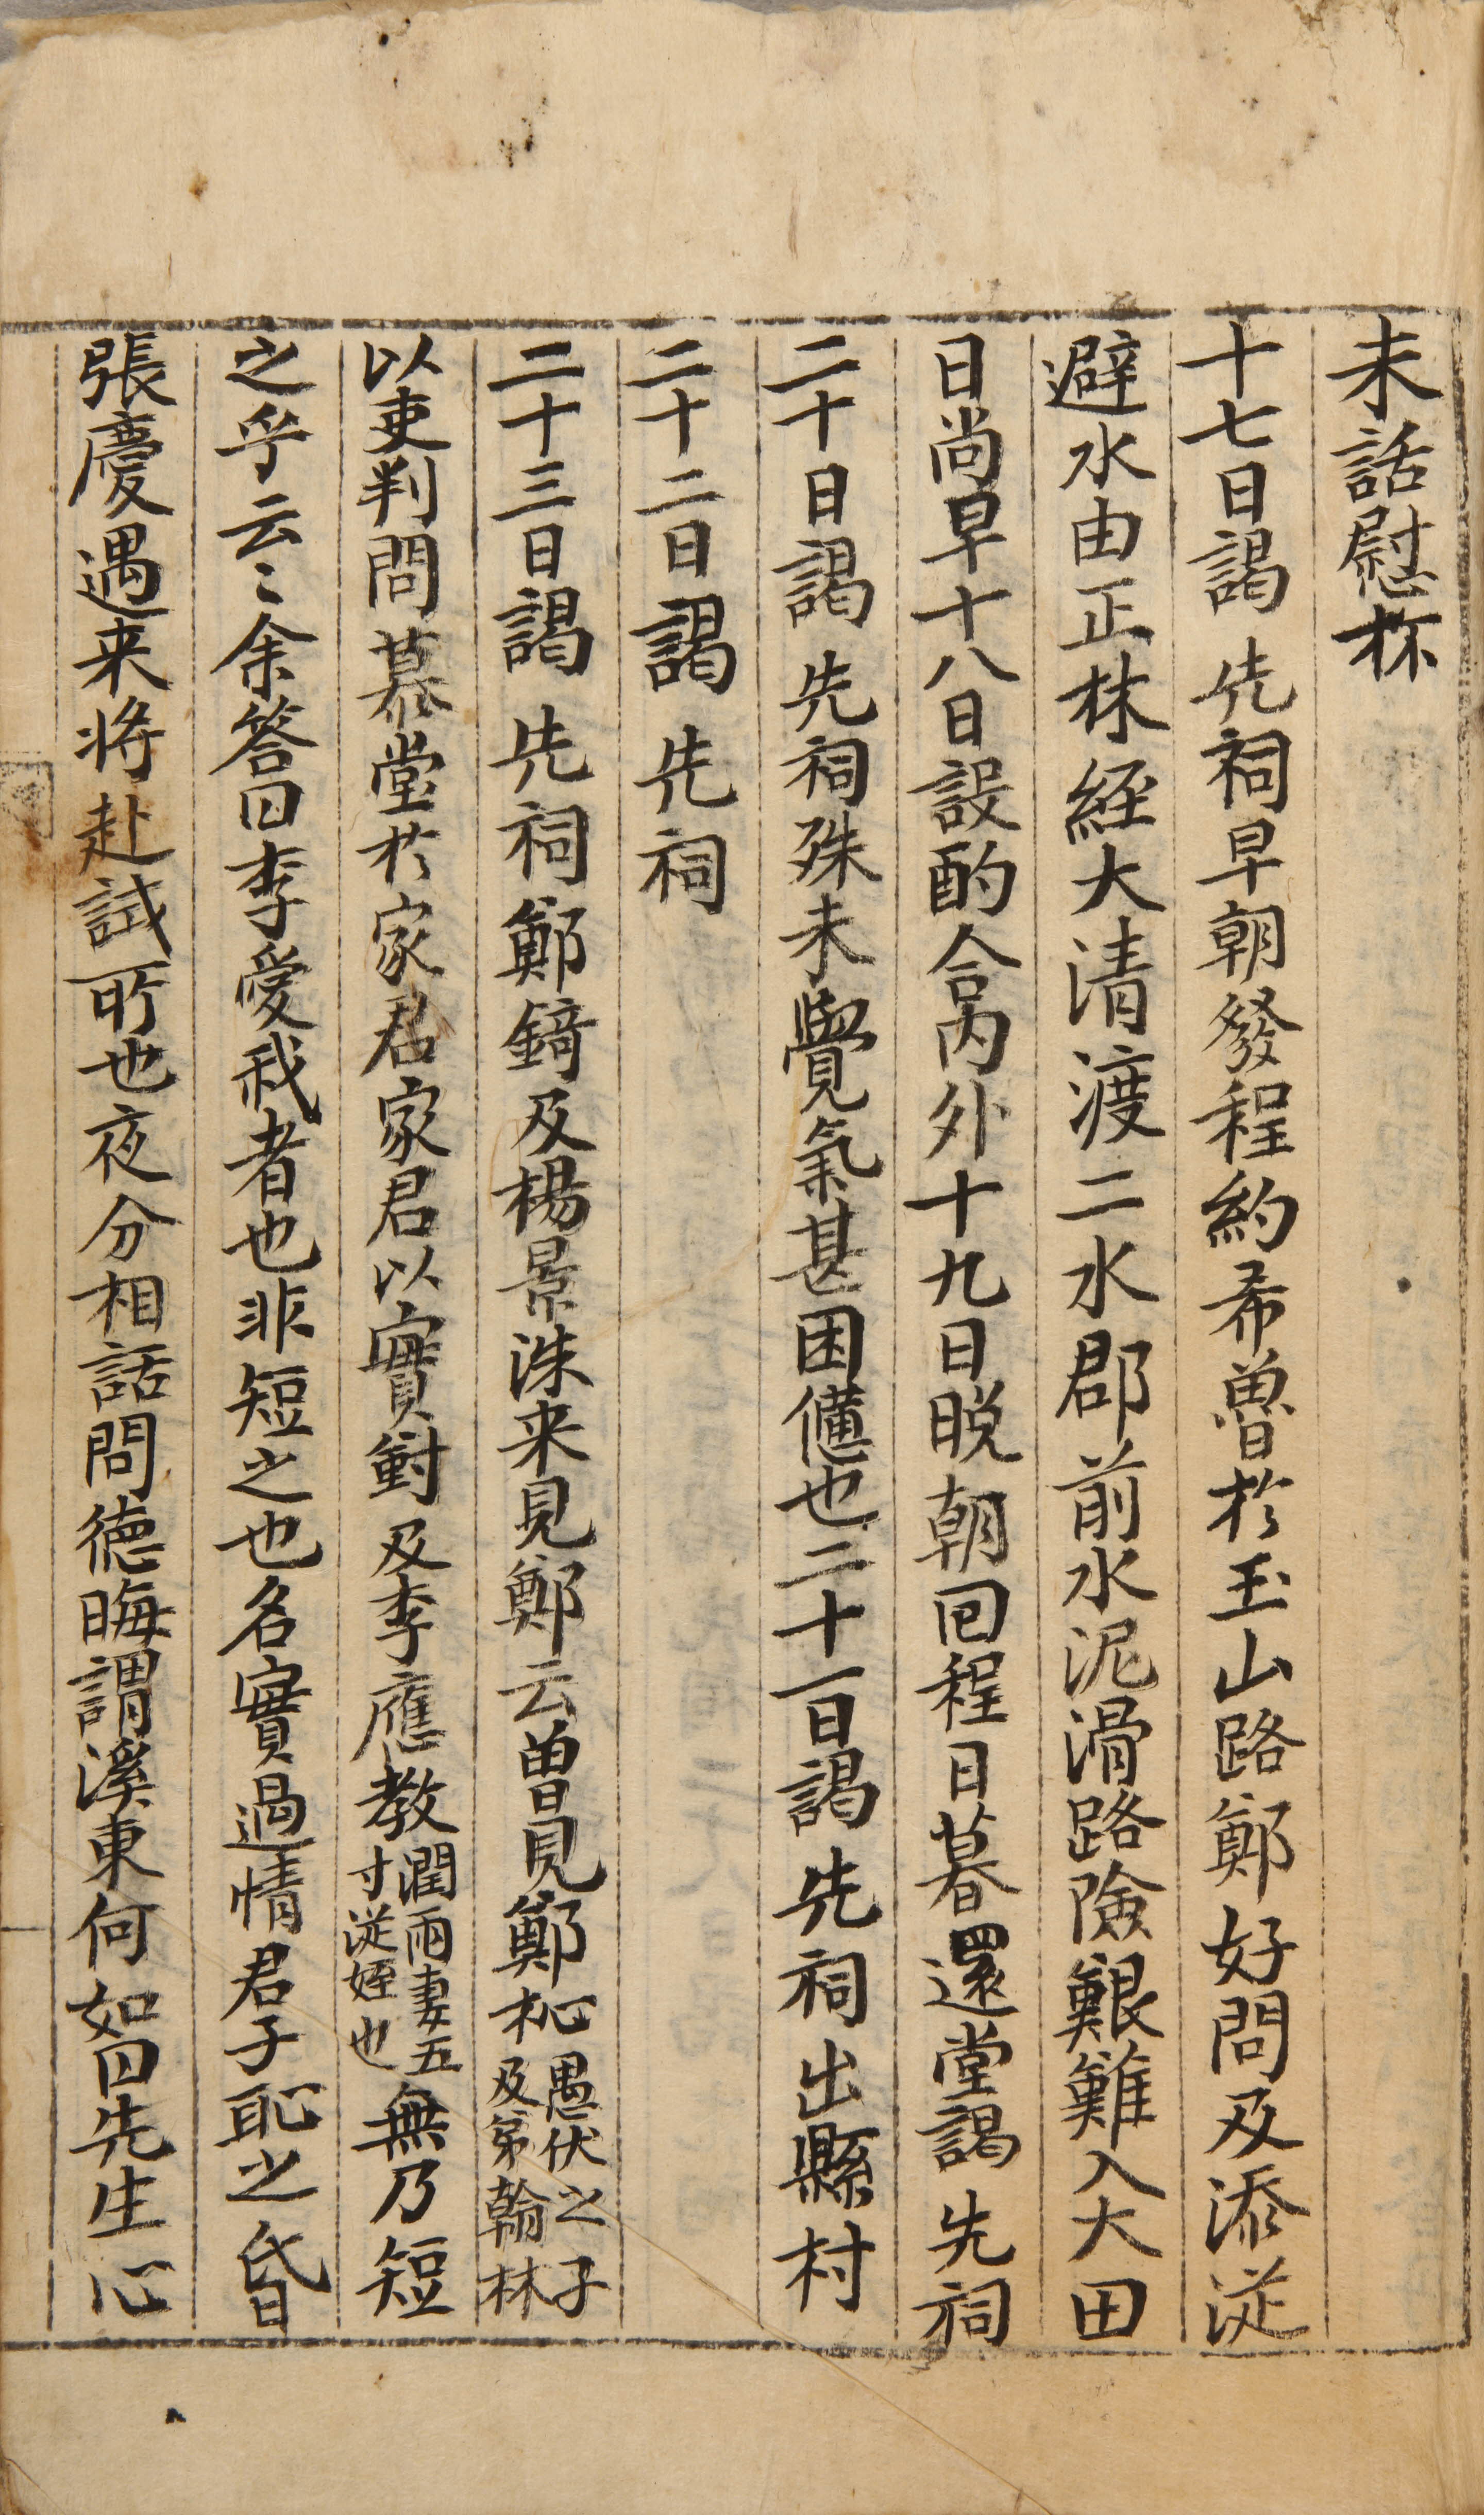 未話慰抔
十七日謁 先祠早朝發程約希魯於玉山路鄭好問及添從
避水由正林経大清渡二水郡前水泥滑路險艱難入大田
日尚早十八日設酌會內外十九日晚朝回程日暮還堂謁 先祠
二十日謁 先祠殊未覺氣甚困憊也二十一日謁 先祠出縣村
二十二日謁 先祠
二十三日謁 先祠鄭錡及楊景洙来見鄭云曽見鄭杺愚伏之子及第翰林
以吏判問慕堂於家君家君以實對及李應教潤雨妻五寸從姪也無乃短
之乎云〻余答曰李愛我者也非短之也名實過情君子恥之昏
張慶遇来將赴試所也夜分相話問德晦謂溪東何如曰先生心